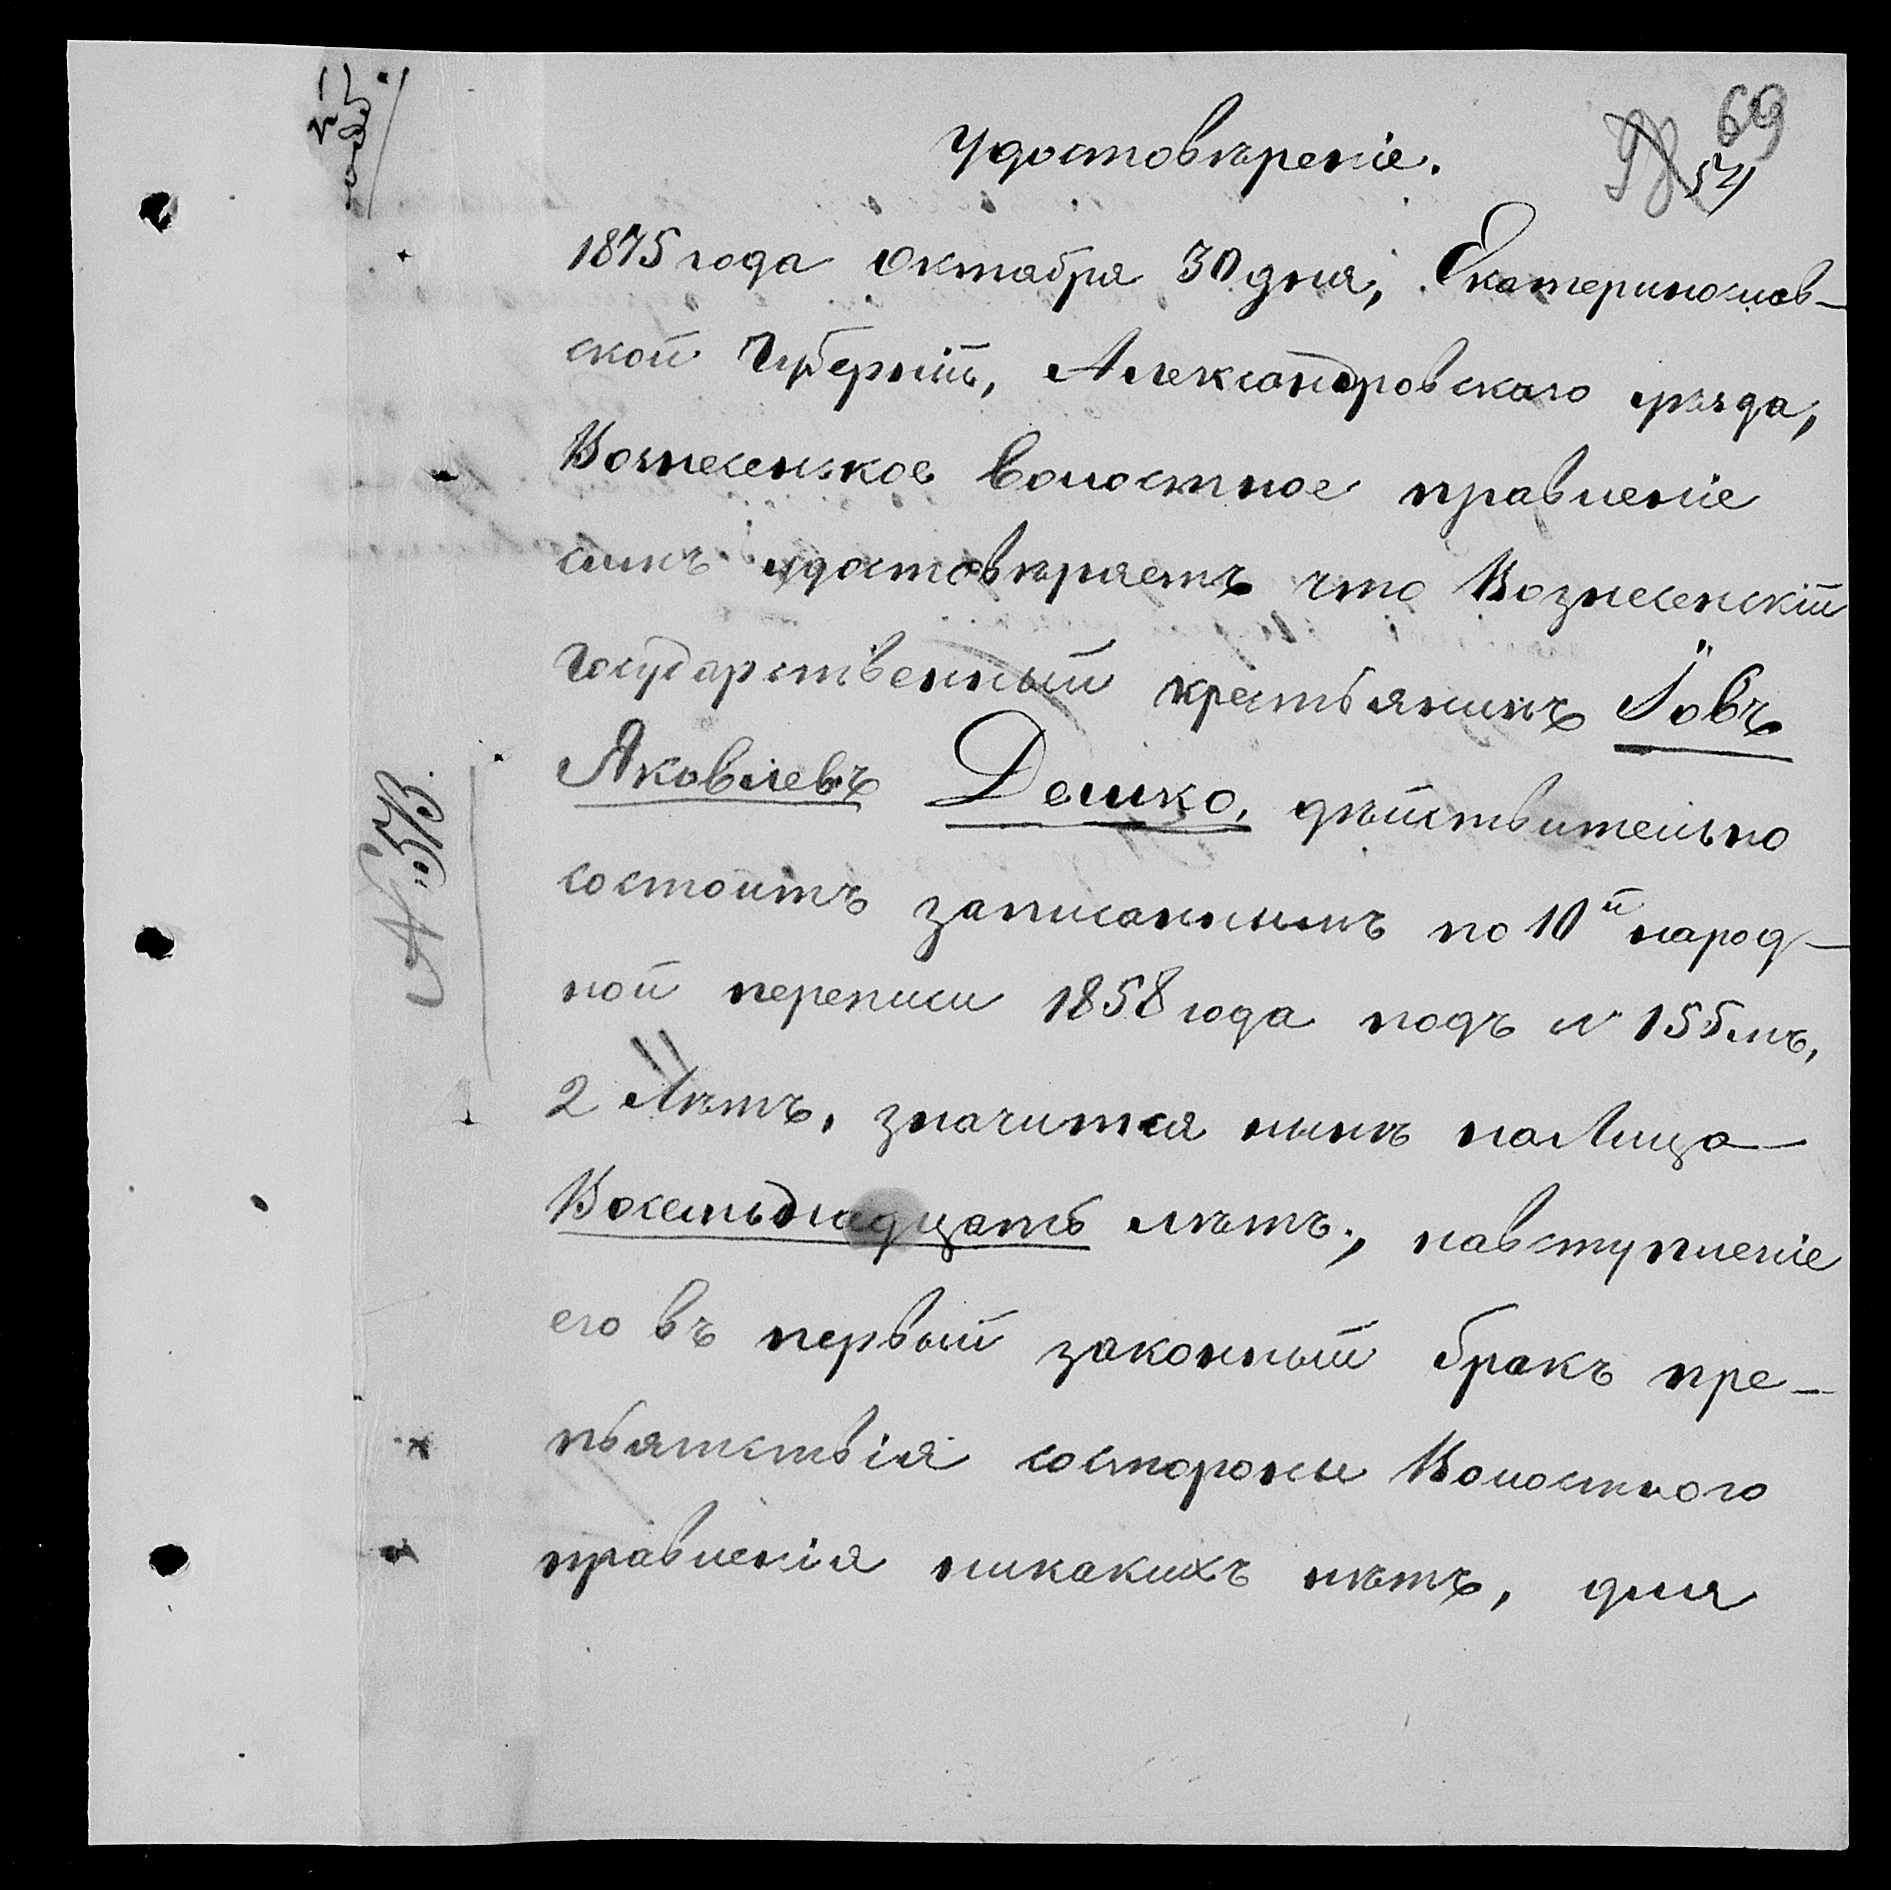 69
54
Удостовѣреніе.
1875 года Октабря 30 дня, Екатеринослав-
ской Губерніи, Александровскаго уѣзда,
Вознесенское волостное правленіе
симъ удостовѣряетъ что Вознесенскій
Государственный крестьянинъ Іовъ
Яковлевъ Дешко, дѣйствительно
состоитъ записаннымъ по 10й народ-
ной переписи 1858 года подъ № 155мъ,
2 Лѣтъ, значится нынѣ налицо
Восемьднадцать лѣтъ, навступленіе
его въ первый законный бракъ пре-
пятствія состороны Волостного
правленія никакихъ нѣтъ, для